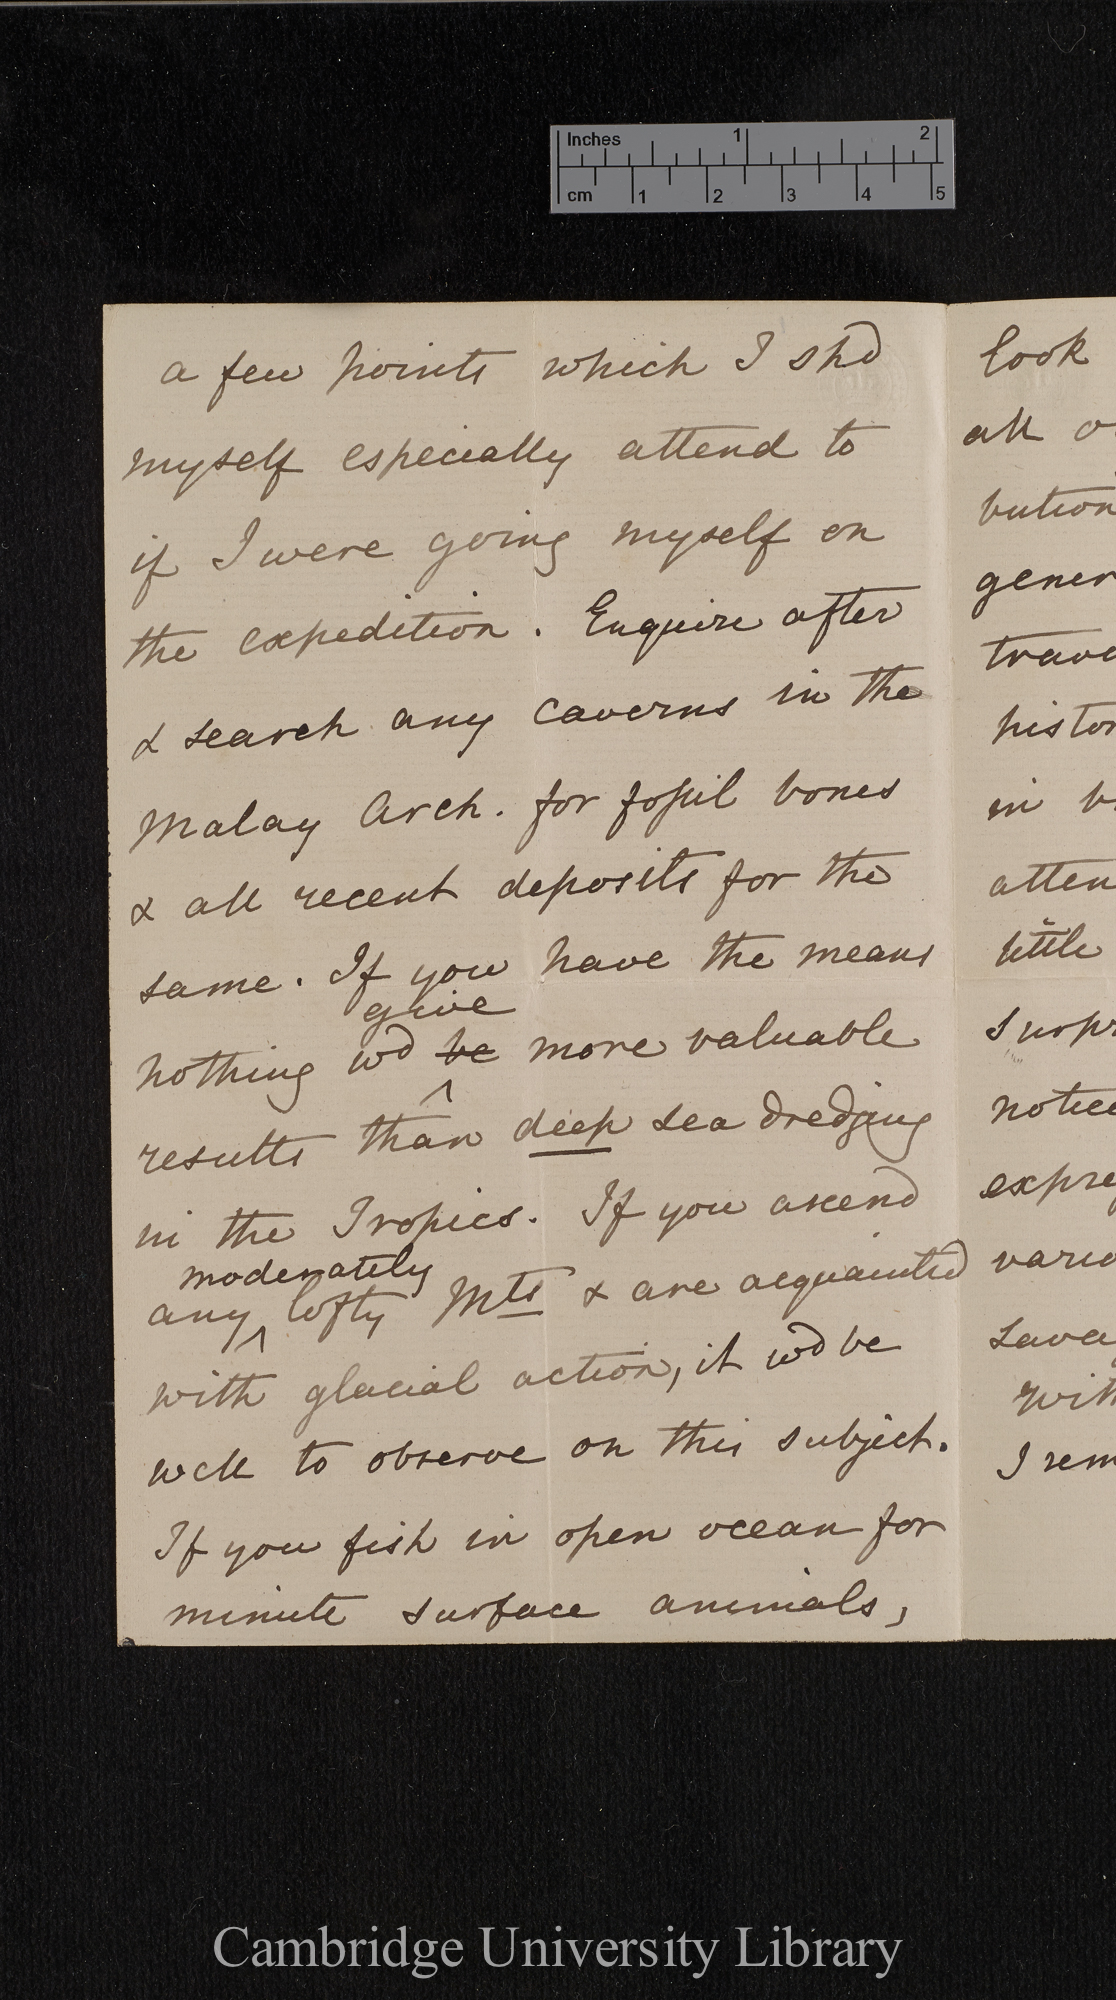 Inches 1 2
cm 1 2 3 4 5
a few points which I shd
myself especially attend to
if I were going myself on
the expedition. Enquire after
& search any caverns in the
Malay Arch. for fossil bones
& all recent deposits for the
same. If you have the means
give
nothing wd be more valuable
results than deep sea dredging
in the Tropics. If you ascend
moderately
any lofty Mts & are acquainted
with glacial action, it wd be
well to observe on this subject.
If you fish in open ocean for
minute surface animals,
look
all o
bution
gener
trave
histor
in b
atten
little
surpr
notice
expre
vario
sava
with
I rem
Cambridge University Library